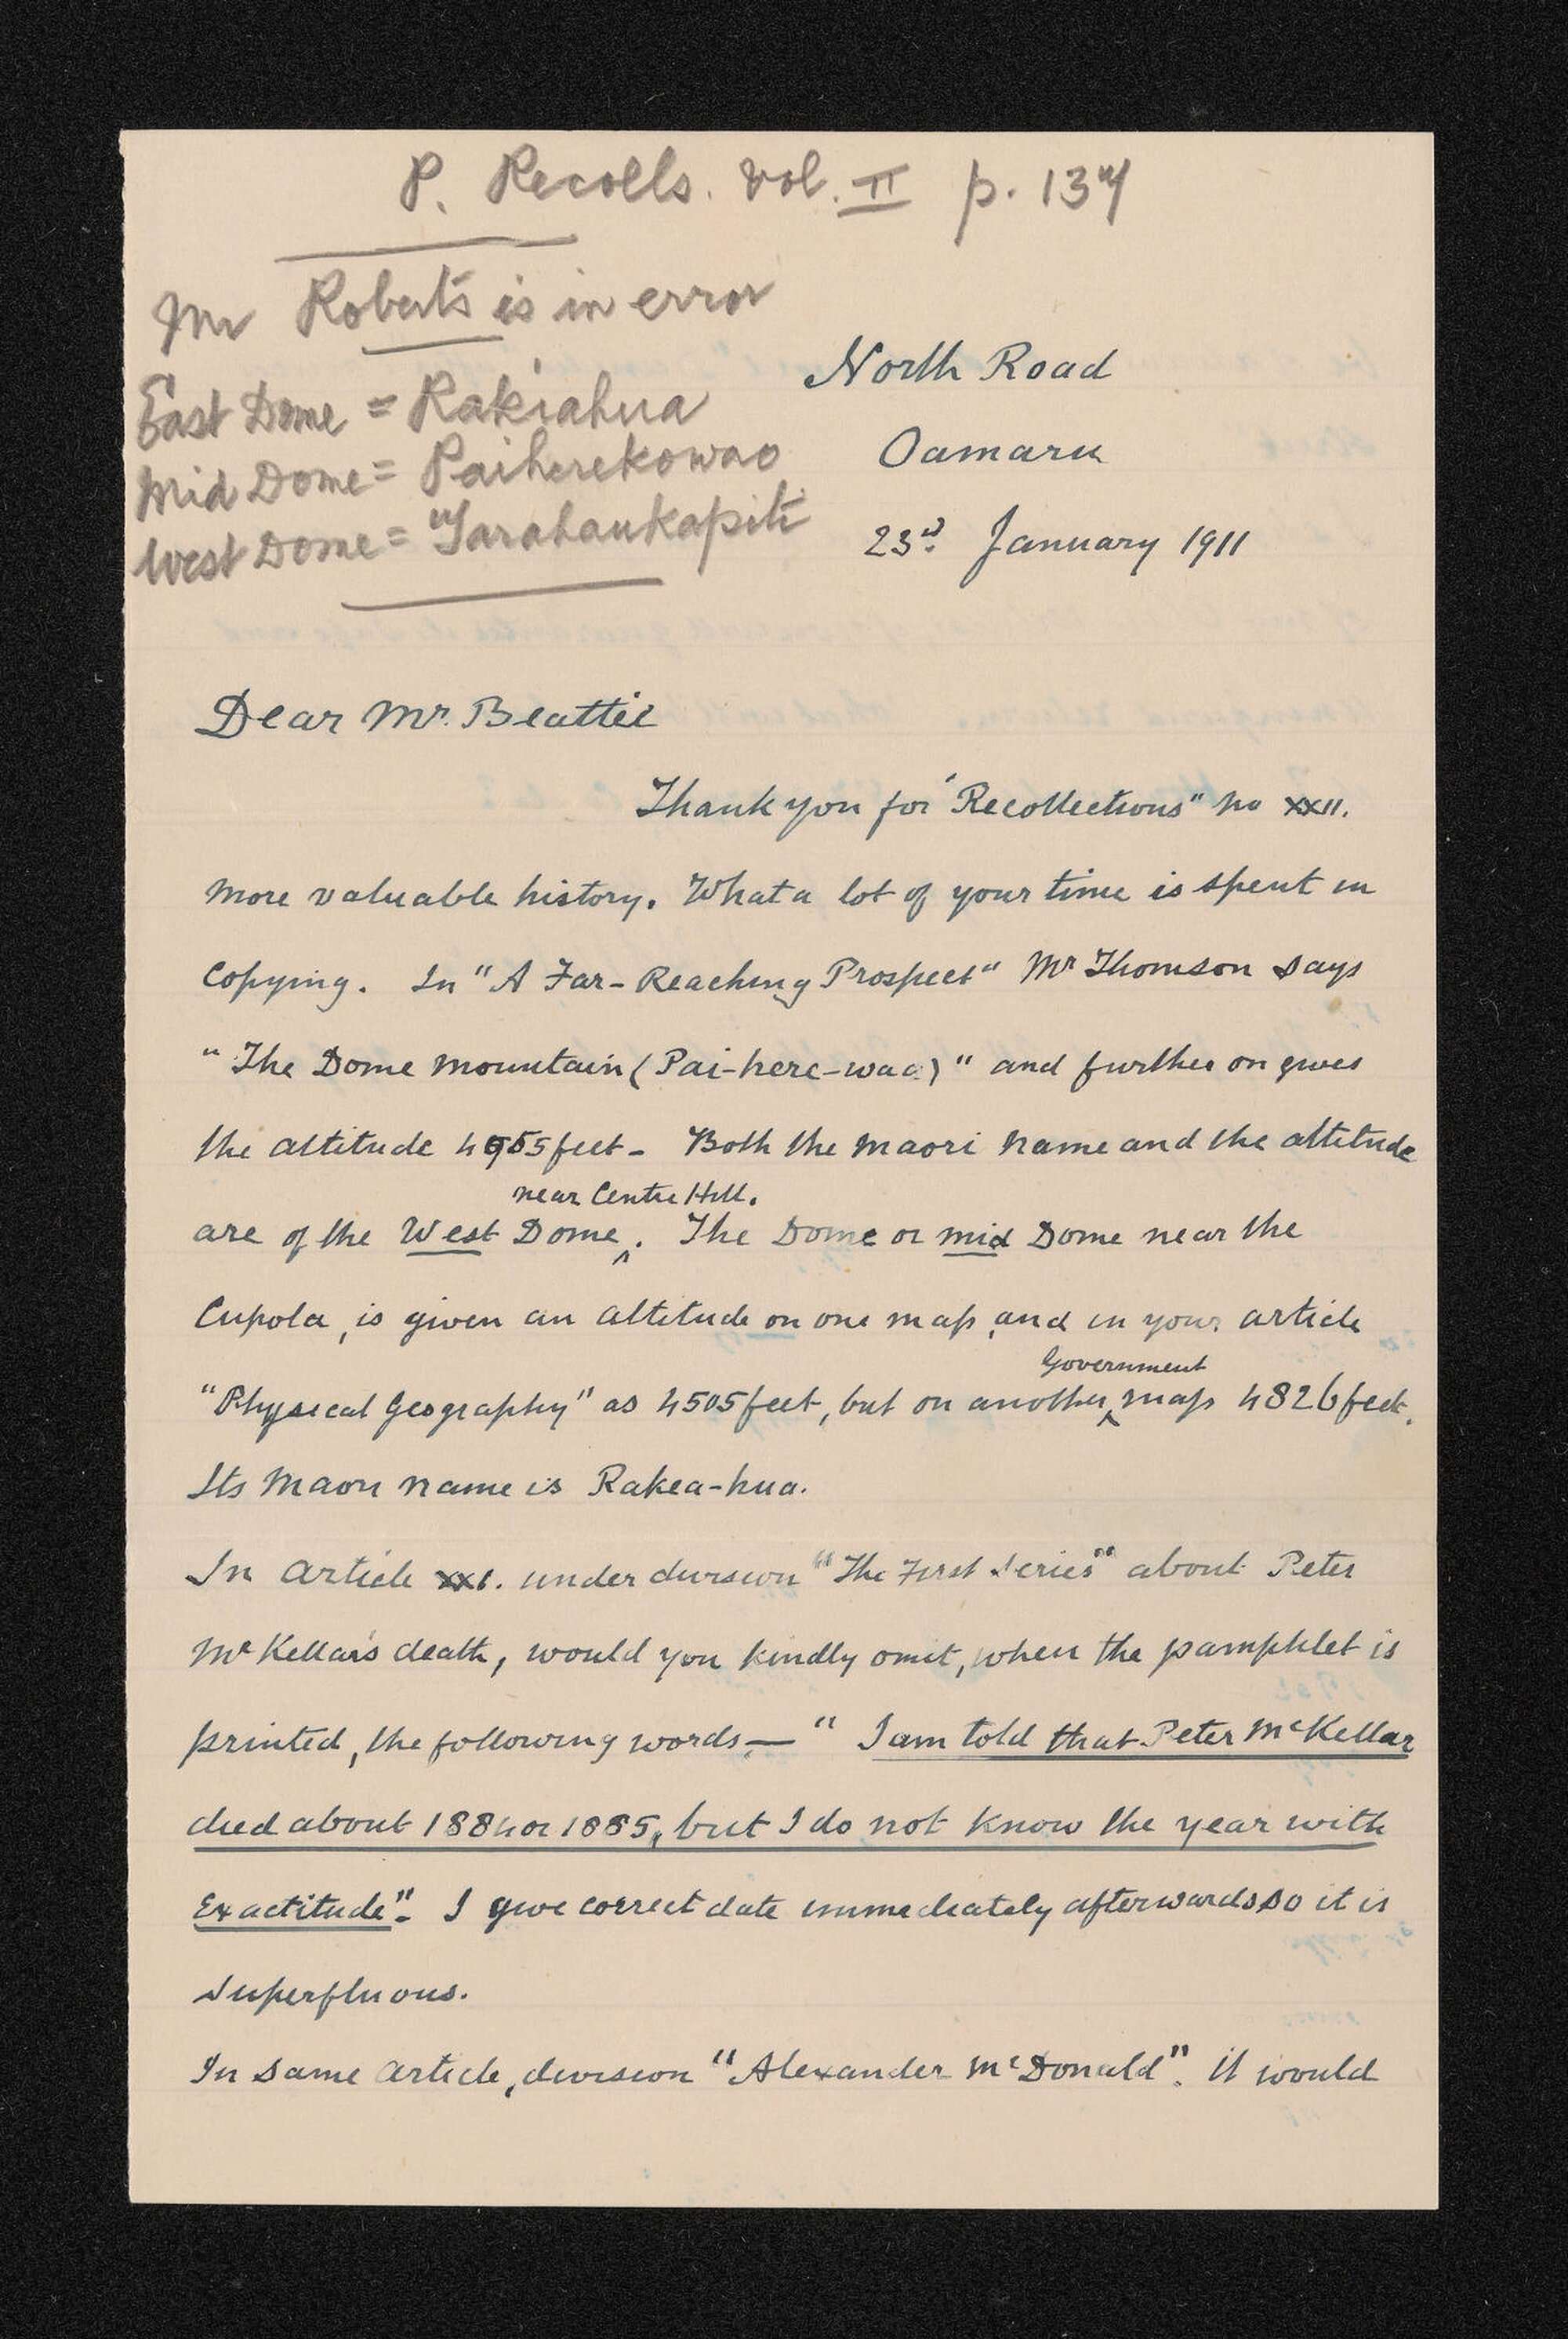 P. Recolls. Vol. II p. 137
Mr Roberts is in error
East Dome = Rakiahua
Mid Dome = Paiherekowao
West Dome = Tarahaukapiti
North Road
Oamaru
23rd. January 1911
Dear Mr. Beattie
Thank you for "Recollections" no XXII.
More valuable history. What a lot of your time is spent in
Copying. In "A Far-Reaching Prospect" Mr Thomson says
"The Dome Mountain (Pai-here-wao)" and further on gives
the altitude 4955 feet - Both the Maori name and the altitude
near Centre Hill.
are of the West Dome ^. The Dome or mid Dome near the
Cupola, is given an altitude on one map, and in your article
Government
"Physical Geography" as 4505 feet, but on another ^ map 4826 feet.
Its Maori name is Rakea-hua.
In Article XXI. under division "The First Series" about Peter
McKellar's death, would you kindly omit, when the pamphlet is
printed, the following words — "I am told that Peter McKellar
died about 1884 or 1885, but I do not know the year with
Exactitude". I give correct date immediately afterwards so it is
superfluous.
In same article, division "Alexander McDonald". It would